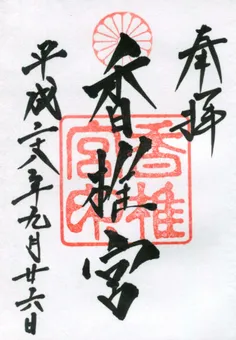 奉拝
香椎宮
平成二十八年九月廿六日
香椎宮印